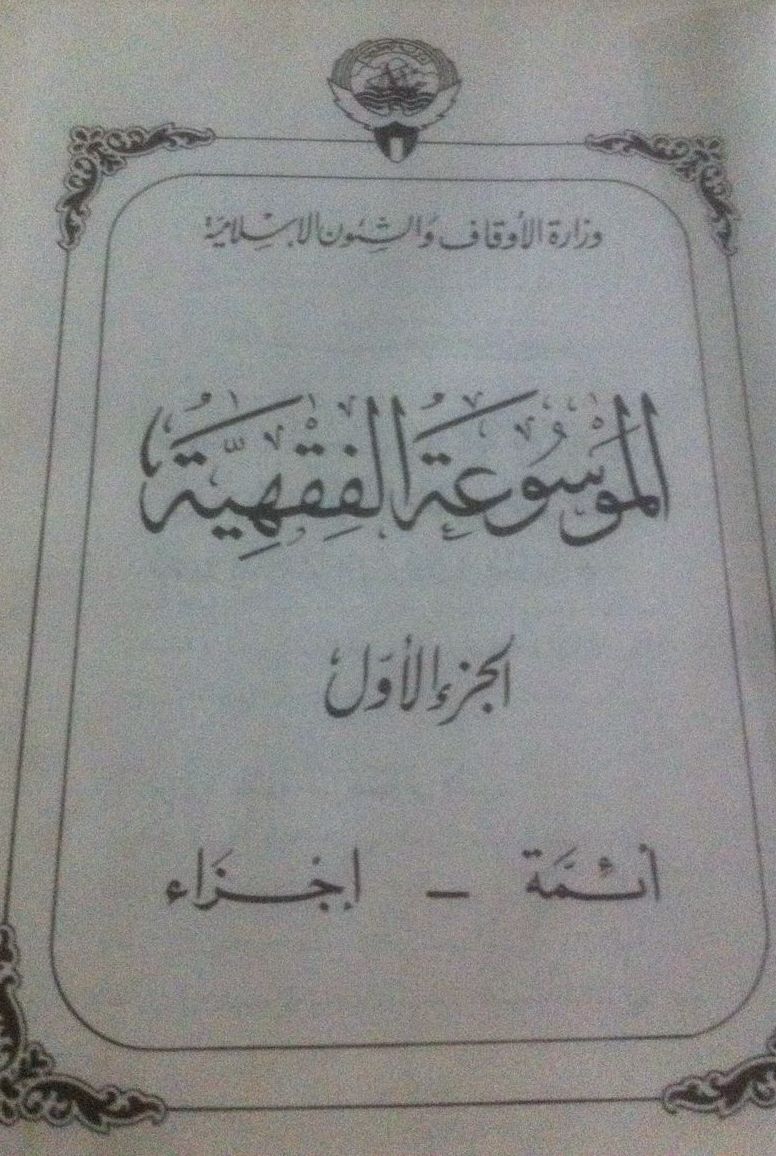 وزارة الأوقاف والشئون الإسلامية
الموَسُوعَة الفِقهِيَّة
الجزء الأوّل
أئمَّة – إجْزَاء